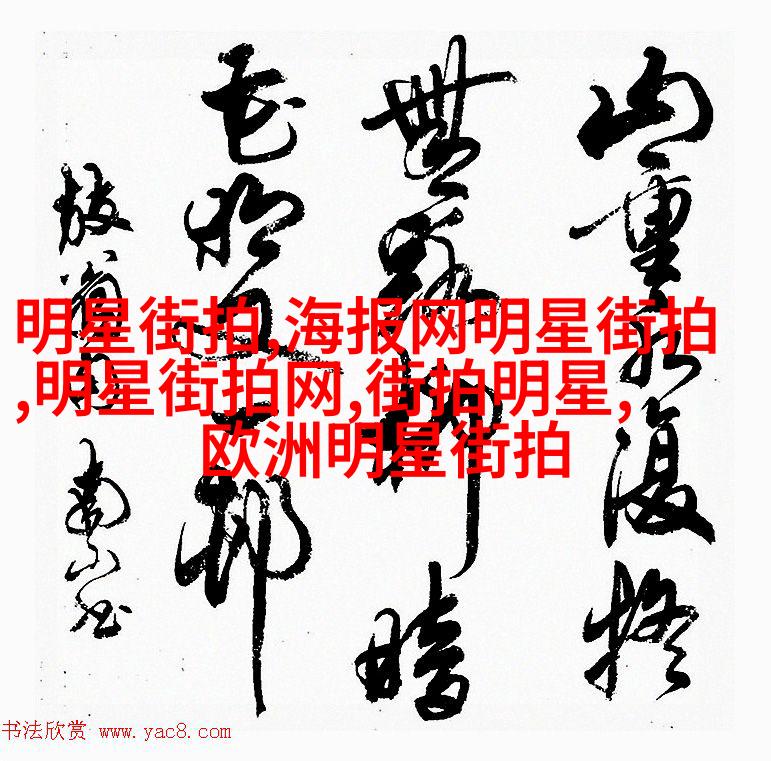 山重水復疑
無路柳暗
花明又一邨
放翁句
明星街拍,海报网明星街拍
,明星街拍网,街拍明星,
欧洲明星街拍
书法欣赏 www.yac8.com